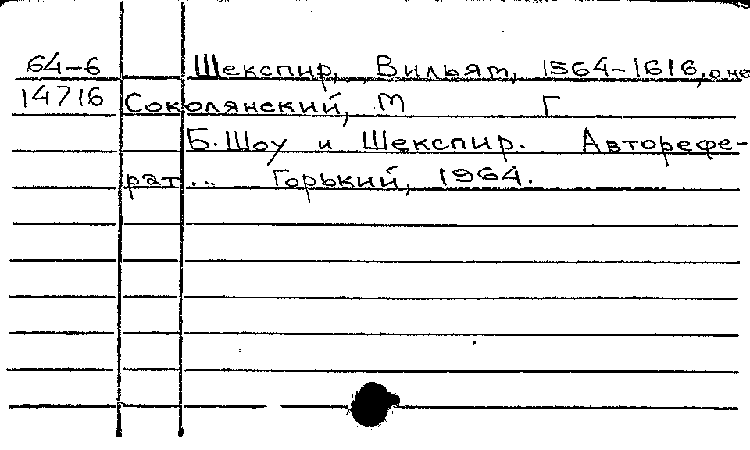 64-6 Шекспир, Вильям, 1564-1616, о не
14716 Соколянский, М Г
Б. Шоу и Шекспир. Авторефе-
рат... Горький, 1964.